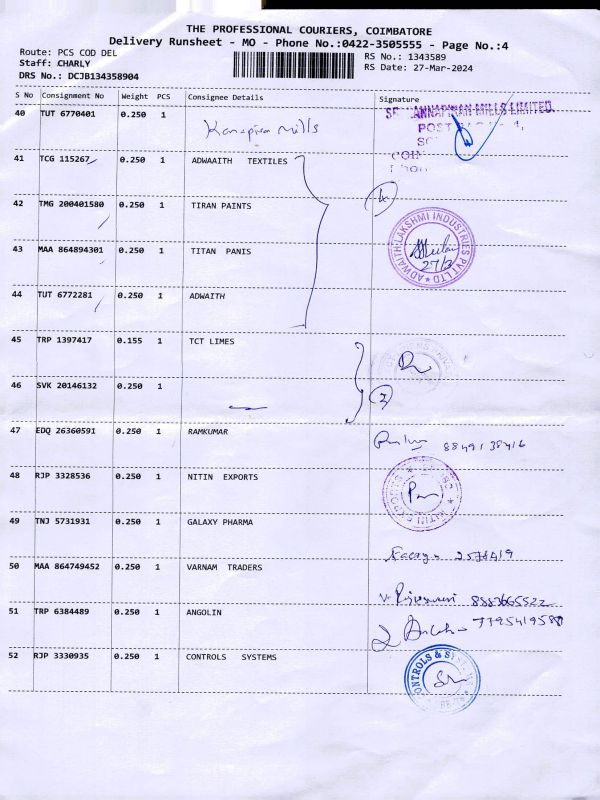 THE PROFESSIONAL COURIERS, COIMBATORE
Delivery Runsheet - MO - Phone No.:0422-3505555 - Page No.:4
Route: PCS COD DEL
RS No.: 1343589
Staff: CHARLY
RS Date: 27-Mar-2024
DRS No.: DCJB134358904
S No Consignment No Weight PCS Consignee Details Signature
40 TUT 6770401 0.250 1
MILLS LIMITED.
POST
41 TCG 115267 0.250 1 ADWAAITH TEXTILES
42 TMG 200401580 0.250 1 TIRAN PAINTS
4
ADWAITH LAKSHMI INDUSTRIES PVT LTD
43 MAA 864894301 0.250 1 TITAN PANIS
44 TUT 6772281 0.250 1 ADWAITH
45 TRP 1397417 0.155 1 TCT LIMES
46 SVK 20146132 0.250 1
2
47 EDQ 26360591 0.250 1 RAMKUMAR
48 RJP 3328536 0.250 1 NITIN EXPORTS
49 TNJ 5731931 0.250 1 GALAXY PHARMA
50 MAA 864749452 0.250 1 VARNAM TRADERS
51 TRP 6384489 0.250 1 ANGOLIN
52 RJP 3330935 0.250 1 CONTROLS SYSTEMS